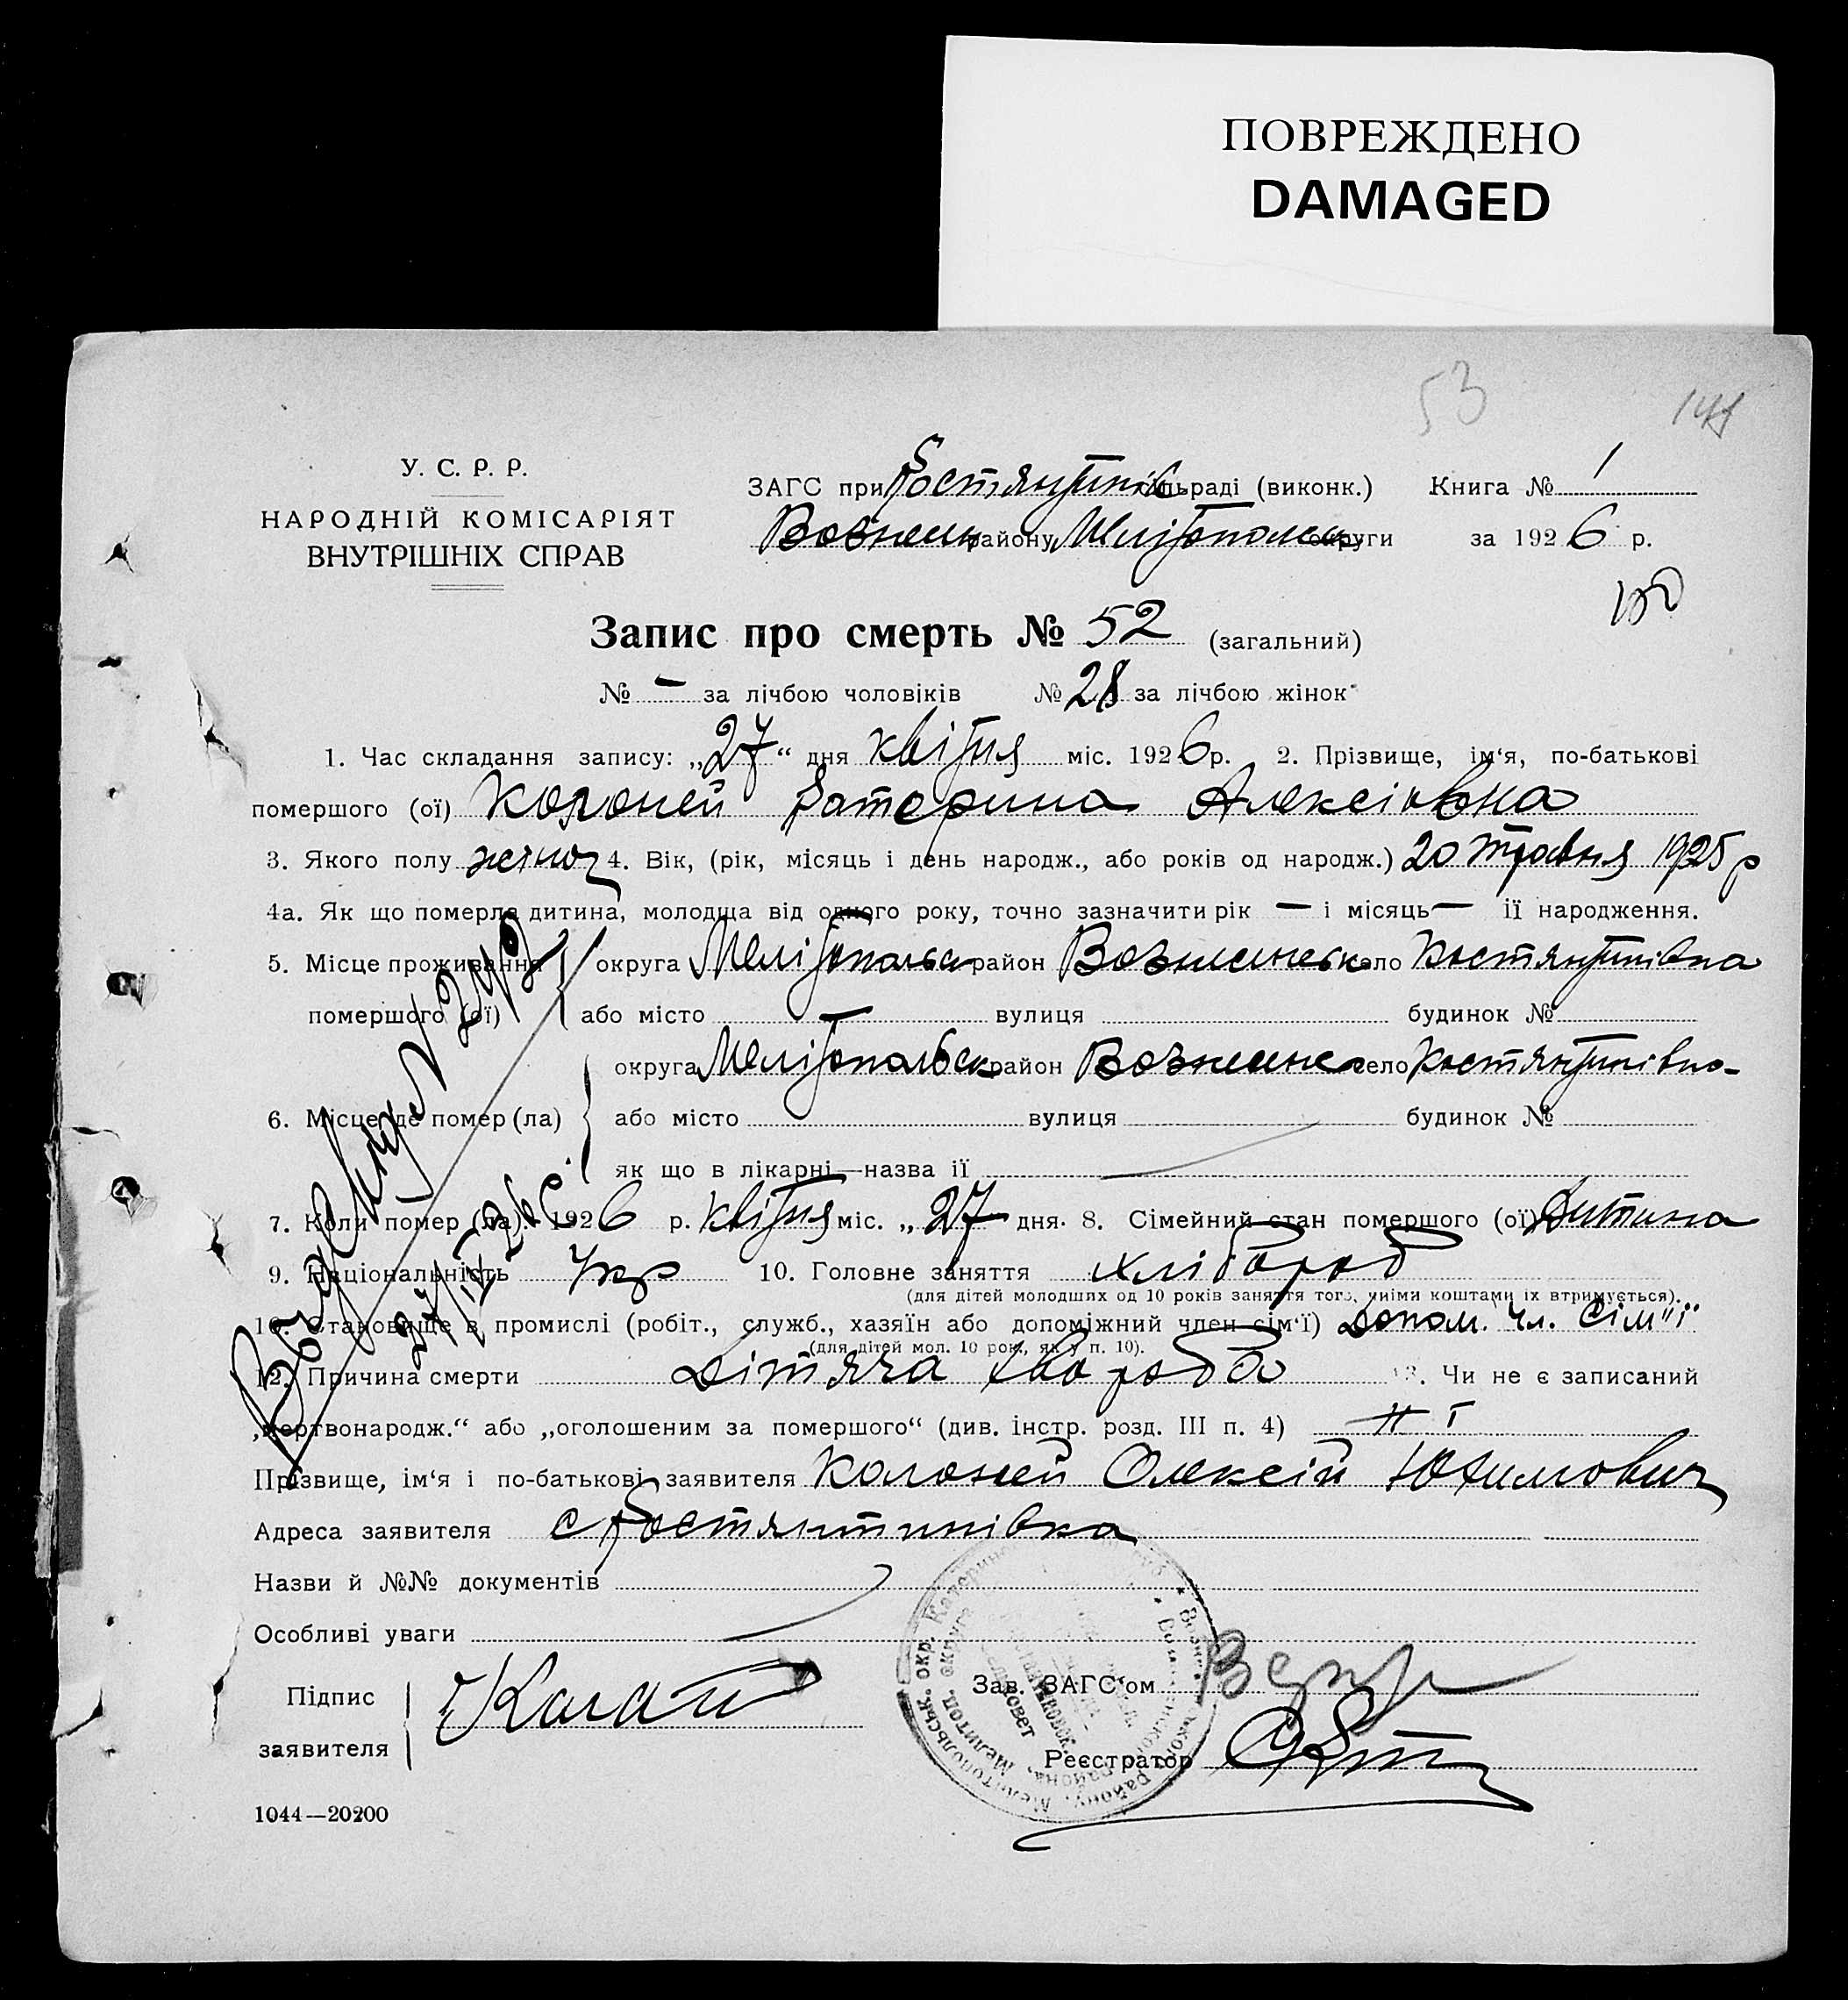 ПОВРЕЖДЕНО
DAMAGED
53
У. С. Р. Р.
НАРОДНІЙ КОМІСАРІЯТ
ВНУТРІШНІХ СПРАВ
ЗАГС при Костянтинів сільраді (виконк.) Книга № 1
Вознесен району Мелітопольськ округи за 1926 р.
Запис про смерть № 52 (загальний)
№ — за лічбою чоловіків № 28 за лічбою жінок
1. Час складання запису: „27“ дня квітня міс. 1926 р. 2. Прізвище, ім‘я, по-батькові
помершого (ої) Колоней Катерина Алексіовна
3. Якого полу жіноч 4. Вік, (рік, місяць і день народж., або років од народж.) 20 травня 1925 р
4а. Як що померла дитина, молодща від одного року, точно зазначити рік — і місяць — її народження.
5. Місце проживання округа Мелітопольськ район Вознесенськ село Костянтинівка
помершого (ої) або місто вулиця будинок №
округа Мелітопольськ район Вознесенс село Костянтинівка
6. Місце де помер (ла) або місто вулиця будинок №
як що в лікарні—назва її
7. Коли помер (ла): 1926 р. квітня міс. „27 дня. 8. Сімейний стан помершого (ої) дитина
9. Національність Укр 10. Головне заняття хлібороб
(для дітей молодших од 10 років заняття того, чиїми коштами їх втримується).
10. Становище в промислі (робіт., служб., хазяїн або допоміжний член сім‘ї) Допом. чл. Сім"ї
(для дітей мол. 10 рок., як у п. 10).
12. Причина смерти Дітяча хвороба
13. Чи не є записаний
„мертвонародж.“ або „оголошеним за помершого“ (див. інстр. розд. III п. 4) ні
Прізвище, ім‘я і по-батькові заявителя Колоней Олексій Юхимович
Адреса заявителя с Костянтинівка
Назви й №№ документів
Особливі уваги
Підпис
заявителя
Зав. ЗАГС'ом
Реєстратор
1044—20200